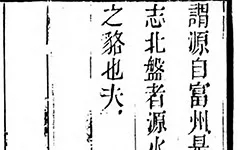 謂源自富州
志北盤者源
之貉也夫，